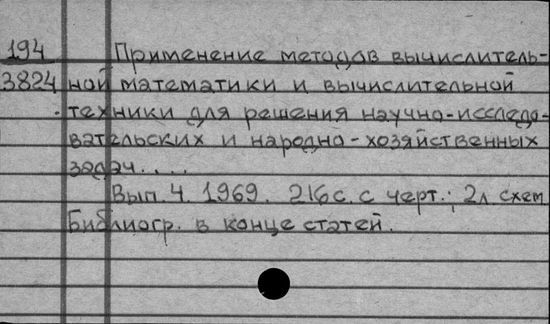 194 Применение методов вычислитель-
3824 ной математики и вычислительной
техники для решения научно-исследо-
вательских и народно-хозяйственных
задач....
Вып. 4. 1969. 216с. с черт.; 2л. схем.
Библиогр. в конце статей.